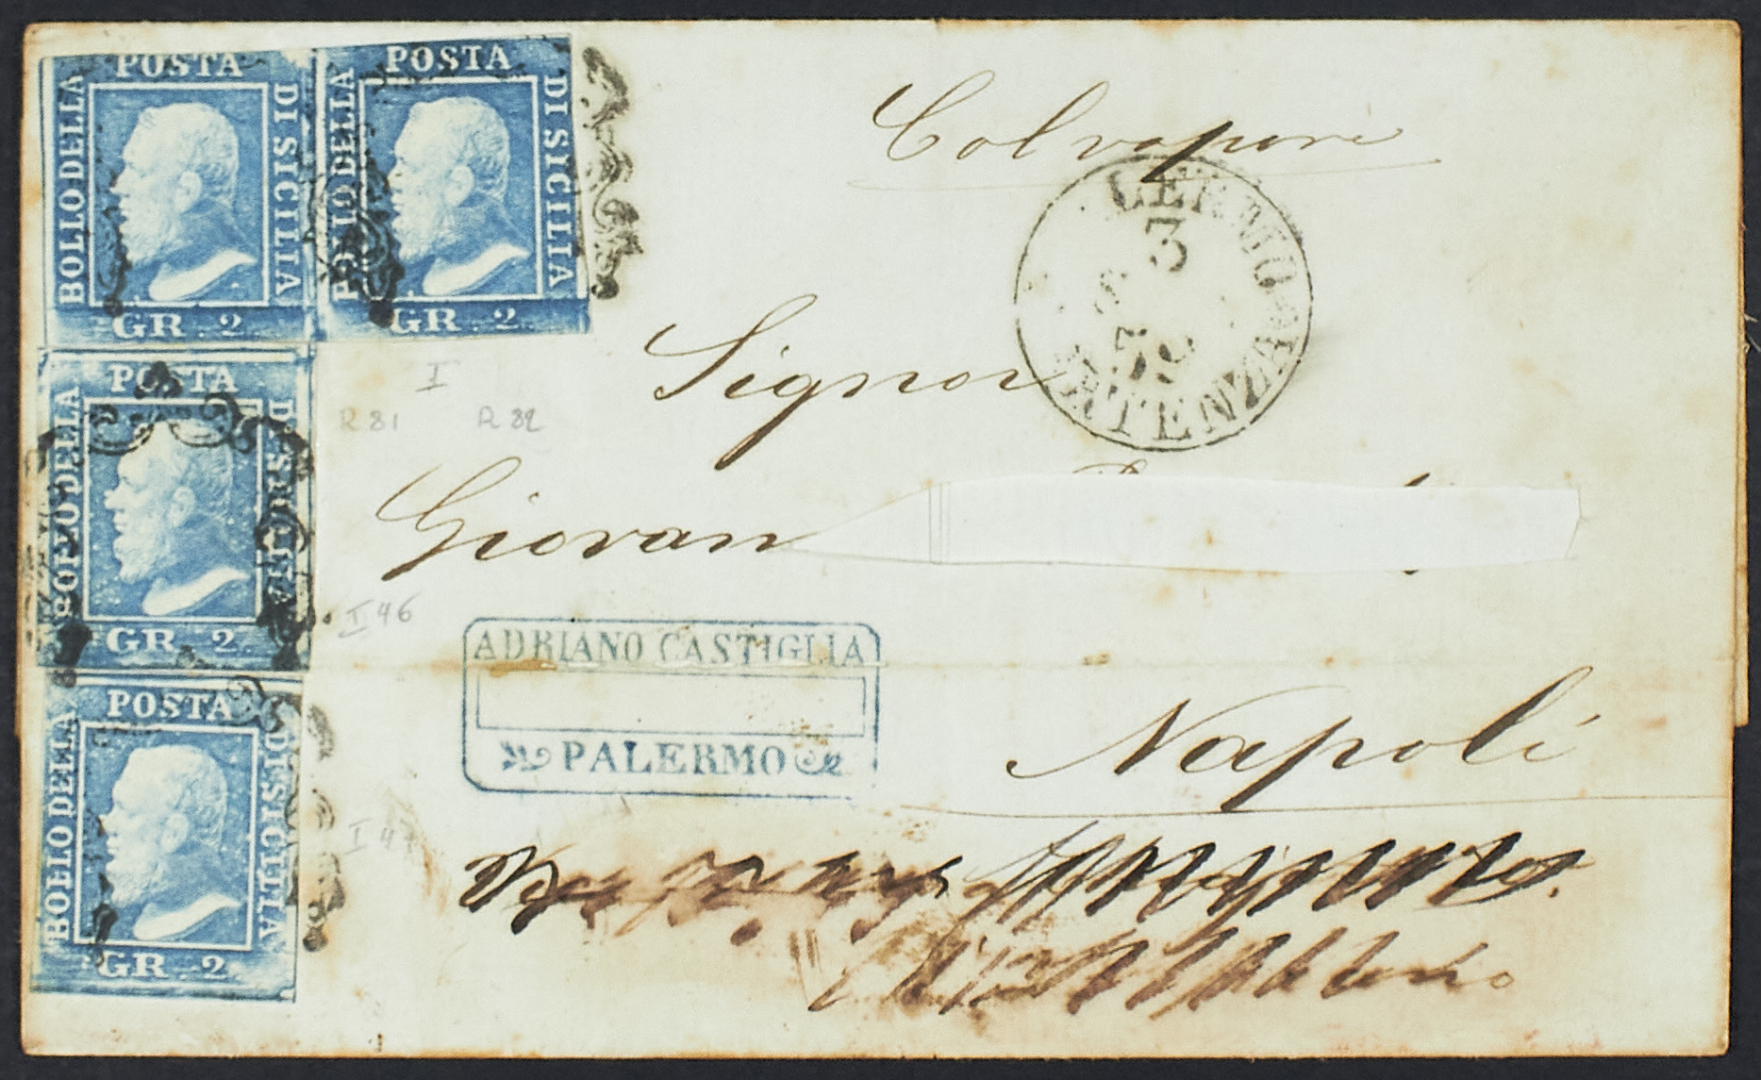 POSTA
BOLLO DELLA
DI SICILIA
GR. 2.
POSTA
BOLLO DELLA
DI SICILIA
GR. 2.
Colvapore
3
59
PARTENZA
Signor
I
R 81 R 82
POSTA
BOLLO DELLA
DI SICILIA
GR. 2.
Giovan
II 46
ADRIANO CASTIGLIA
PALERMO
POSTA
BOLLO DELLA
DI SICILIA
GR. 2.
Napoli
I 47